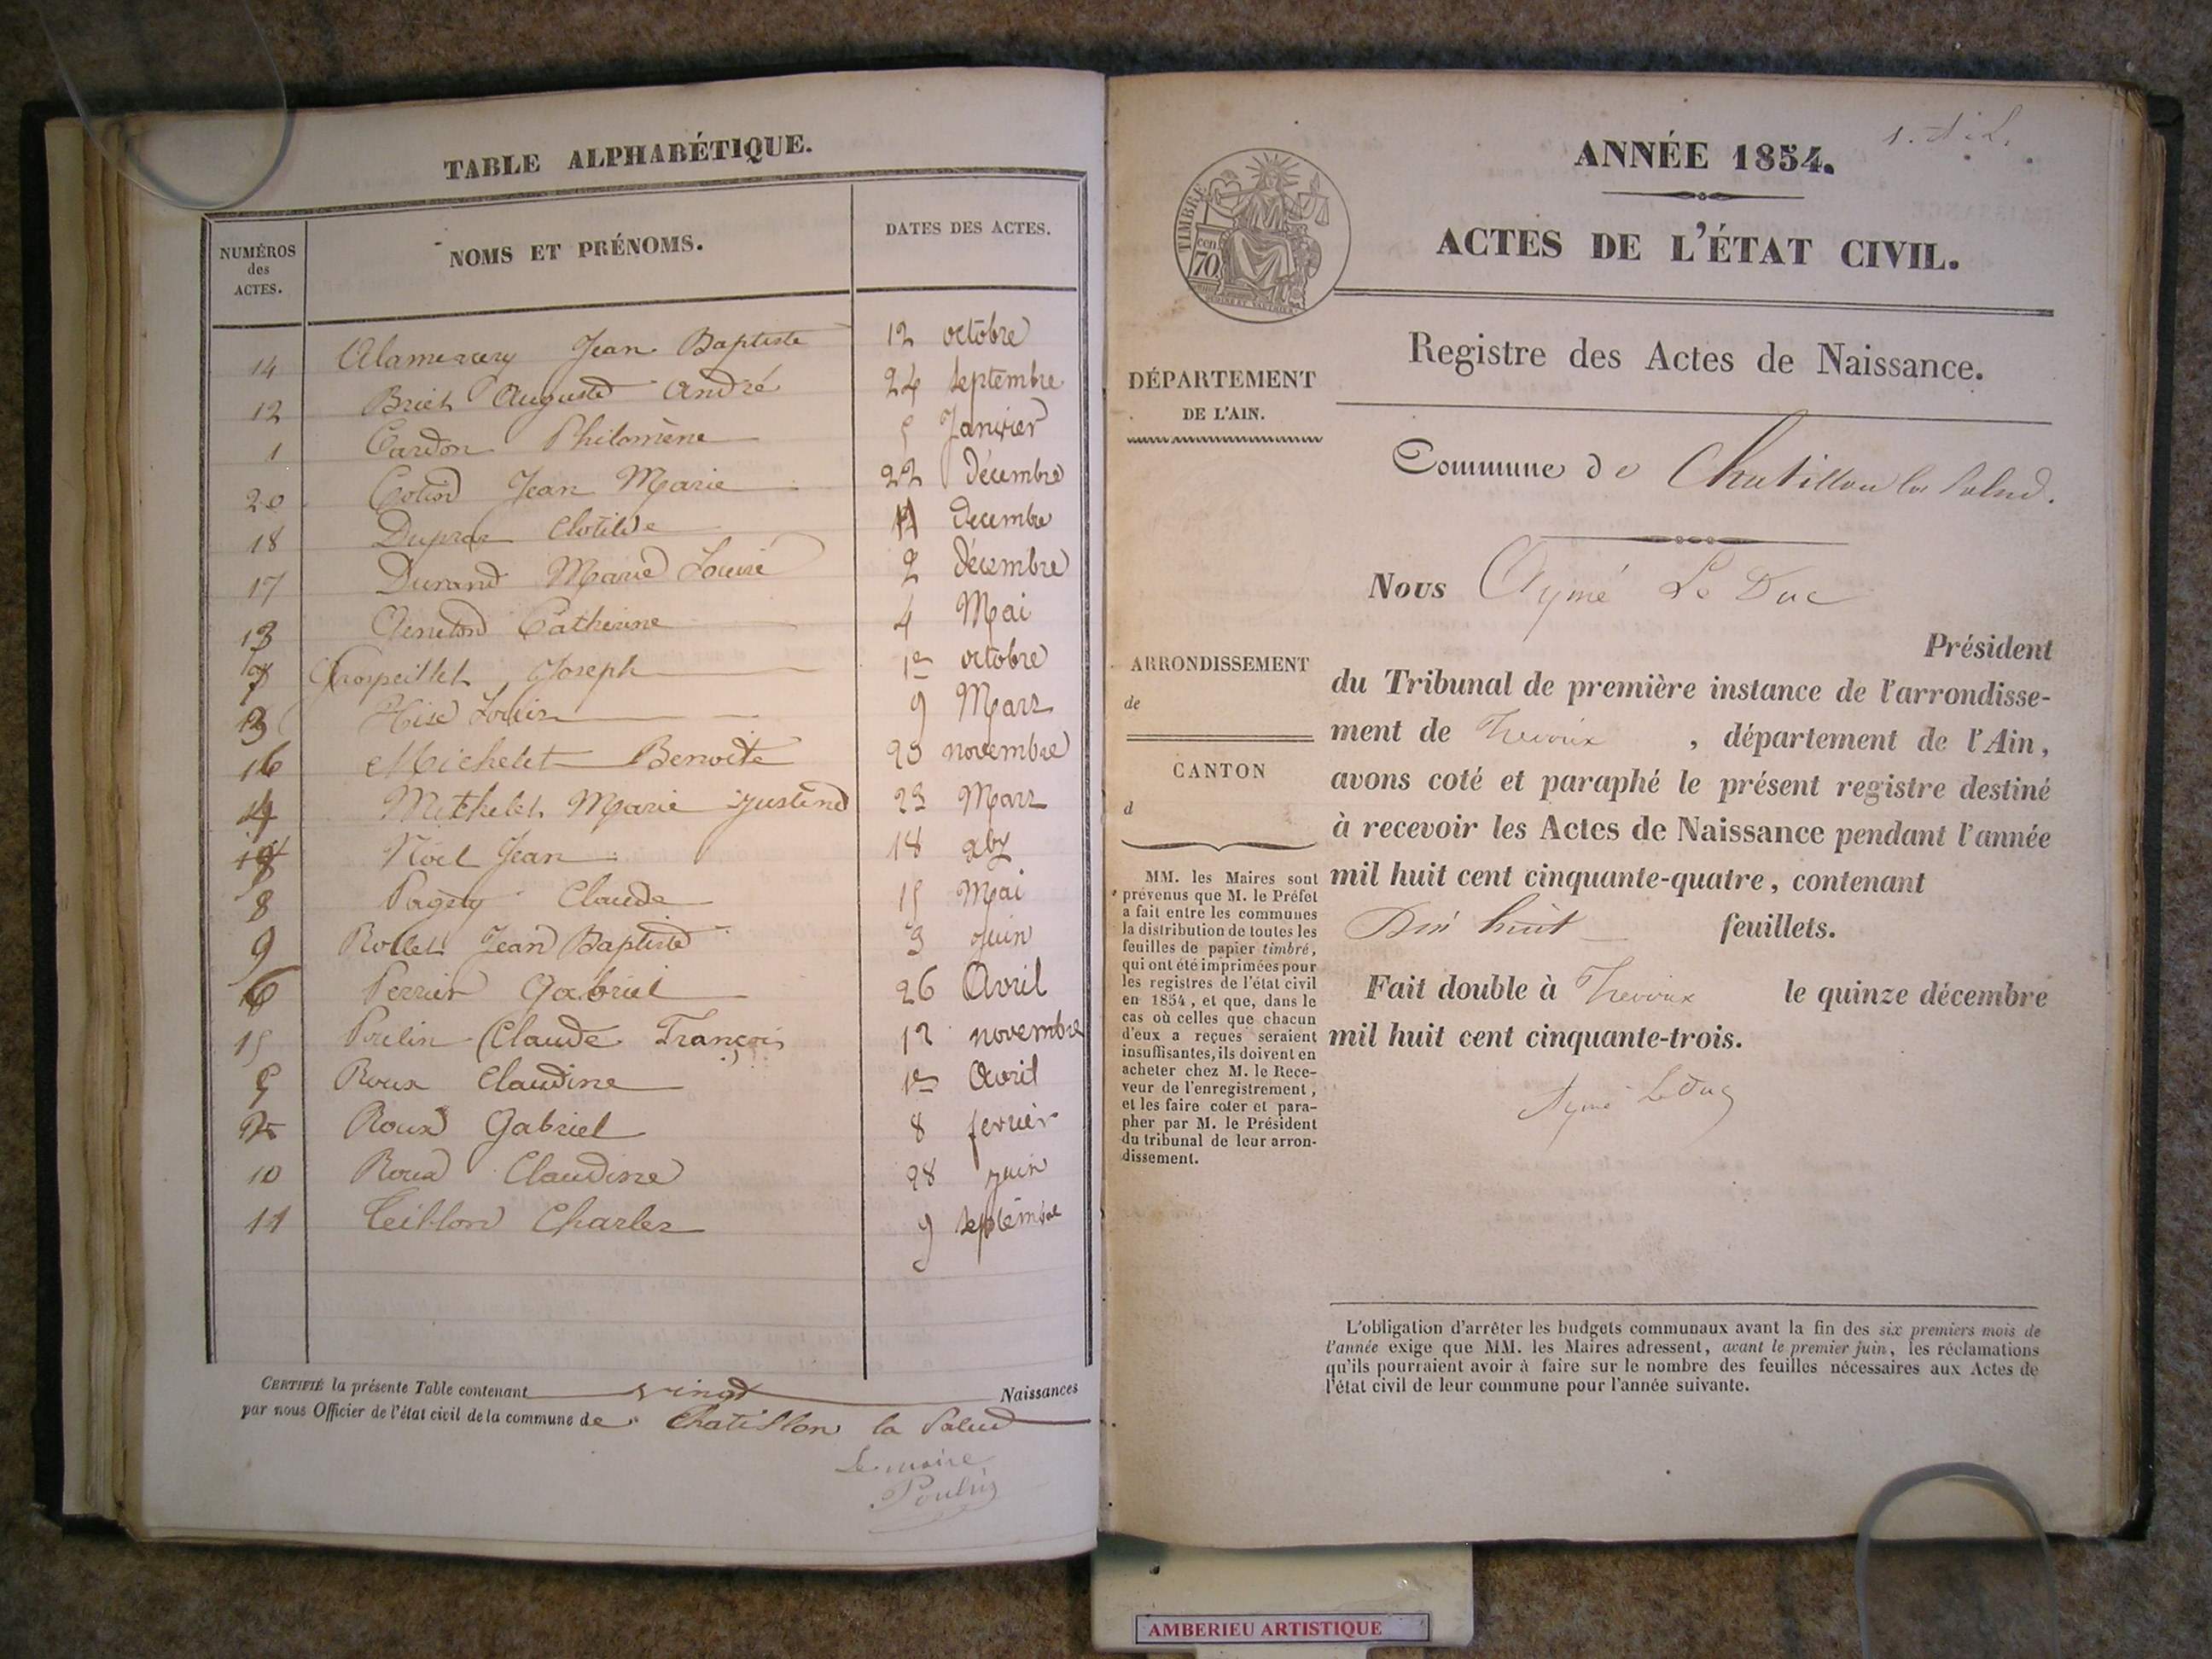 TABLE ALPHABÉTIQUE.
NUMÉROS des ACTES. NOMS ET PRÉNOMS. DATES DES ACTES.
14 Alamercery Jean Baptiste 12 octobre
12 Auguste André 24 septembre
1 Cardon Philomène 5 Janvier
20 Jean Marie 22 décembre
18 Clotilde décembre
17 Durand Marie Louise 2 décembre
Catherine 4 Mai
Joseph 1er octobre
Louis 9 Mars
16 Michelet Benoite novembre
4 Michelet Marie Justine 23 Mars
Noël Jean 18 xbre
8 Claude 15 Mai
9 Rollet Jean Baptiste 3 Juin
6 Perrier Gabriel 26 Avril
15 Poulin Claude François 12 novembre
5 Roux Claudine 1er Avril
Roux Gabriel 8 fevrier
10 Roux Claudine 28 juin
11 Teillon Charles 9 septembre
CERTIFIÉ la présente Table contenant vingt Naissances
par nous Officier de l'état civil de la commune de Chatillon la Palud
Le maire
Poulin
ANNÉE 1854.
TIMBRE
cen 70
ACTES DE L'ÉTAT CIVIL.
Registre des Actes de Naissance.
DÉPARTEMENT
DE L'AIN.
Commune de Chatillon la Palud.
Nous Aymé Le Duc
Président
ARRONDISSEMENT
de
CANTON
d
du Tribunal de première instance de l'arrondisse-
ment de Trevoux , département de l'Ain,
avons coté et paraphé le présent registre destiné
à recevoir les Actes de Naissance pendant l'année
mil huit cent cinquante-quatre, contenant
Dix huit feuillets.
Fait double à Trevoux le quinze décembre
mil huit cent cinquante-trois.
Aymé Le Duc
MM. les Maires sont
prévenus que M. le Préfet
a fait entre les communes
la distribution de toutes les
feuilles de papier timbré,
qui ont été imprimées pour
les registres de l'état civil
en 1854, et que, dans le
cas où celles que chacun
d'eux a reçues seraient
insuffisantes, ils doivent en
acheter chez M. le Rece-
veur de l'enregistrement,
et les faire coter et para-
pher par M. le Président
du tribunal de leur arron-
dissement.
L'obligation d'arrêter les budgets communaux avant la fin des six premiers mois de
l'année exige que MM. les Maires adressent, avant le premier juin, les réclamations
qu'ils pourraient avoir à faire sur le nombre des feuilles nécessaires aux Actes de
l'état civil de leur commune pour l'année suivante.
AMBERIEU ARTISTIQUE